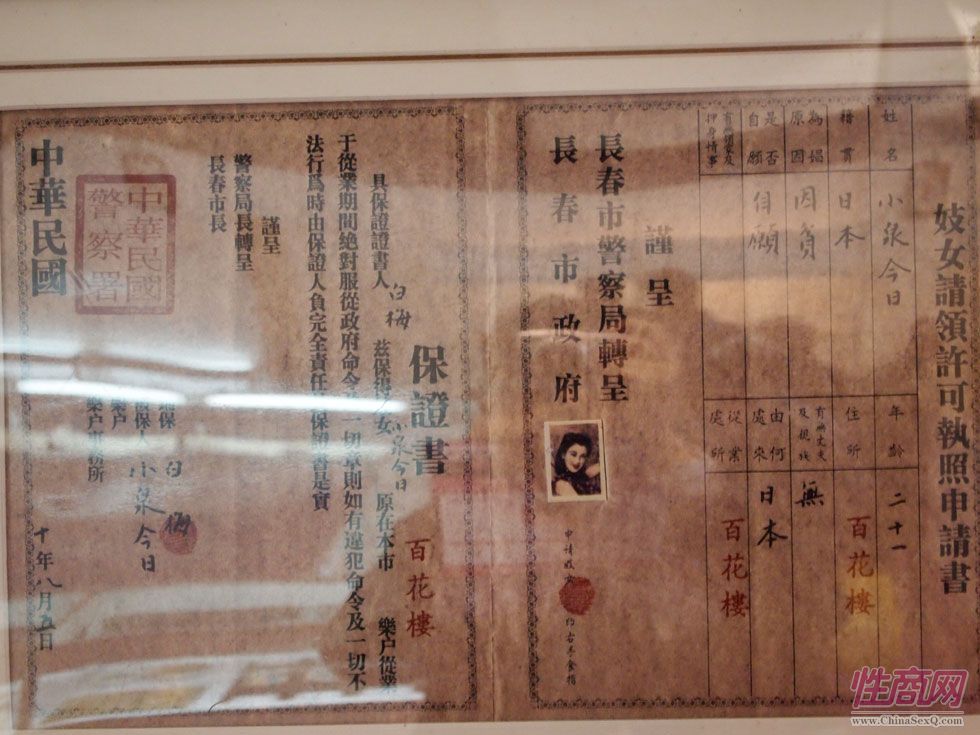 妓女請領許可執照申請書
姓名 小泉今日 年齡 二十一
籍貫 日本 住所 百花樓
為娼原因 因貧 有無丈夫及親族 無
是否自願 自願 由何處來 日本
押身情事 從業處所 百花樓
謹呈
長春市警察局轉呈
長春市政府
申請妓女
保證書
百花樓
具保證證書人 白梅 茲保得少女 小泉今日 原在本市 樂户從業
于從業期間絶對服從政府命令及一切章則如有違犯命令及一切不
法行爲時由保證人負完全責任 保證書是實
謹呈
警察局長轉呈
長春市長
保 白梅
保人 小泉今日
樂户
樂户事務所
中華民國
警察署
中華民國 十年八月五日
性商网
www.ChinaSexQ.com